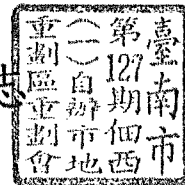 臺南市
第127期佃西
(一)自辦市地
重劃區重劃會
志